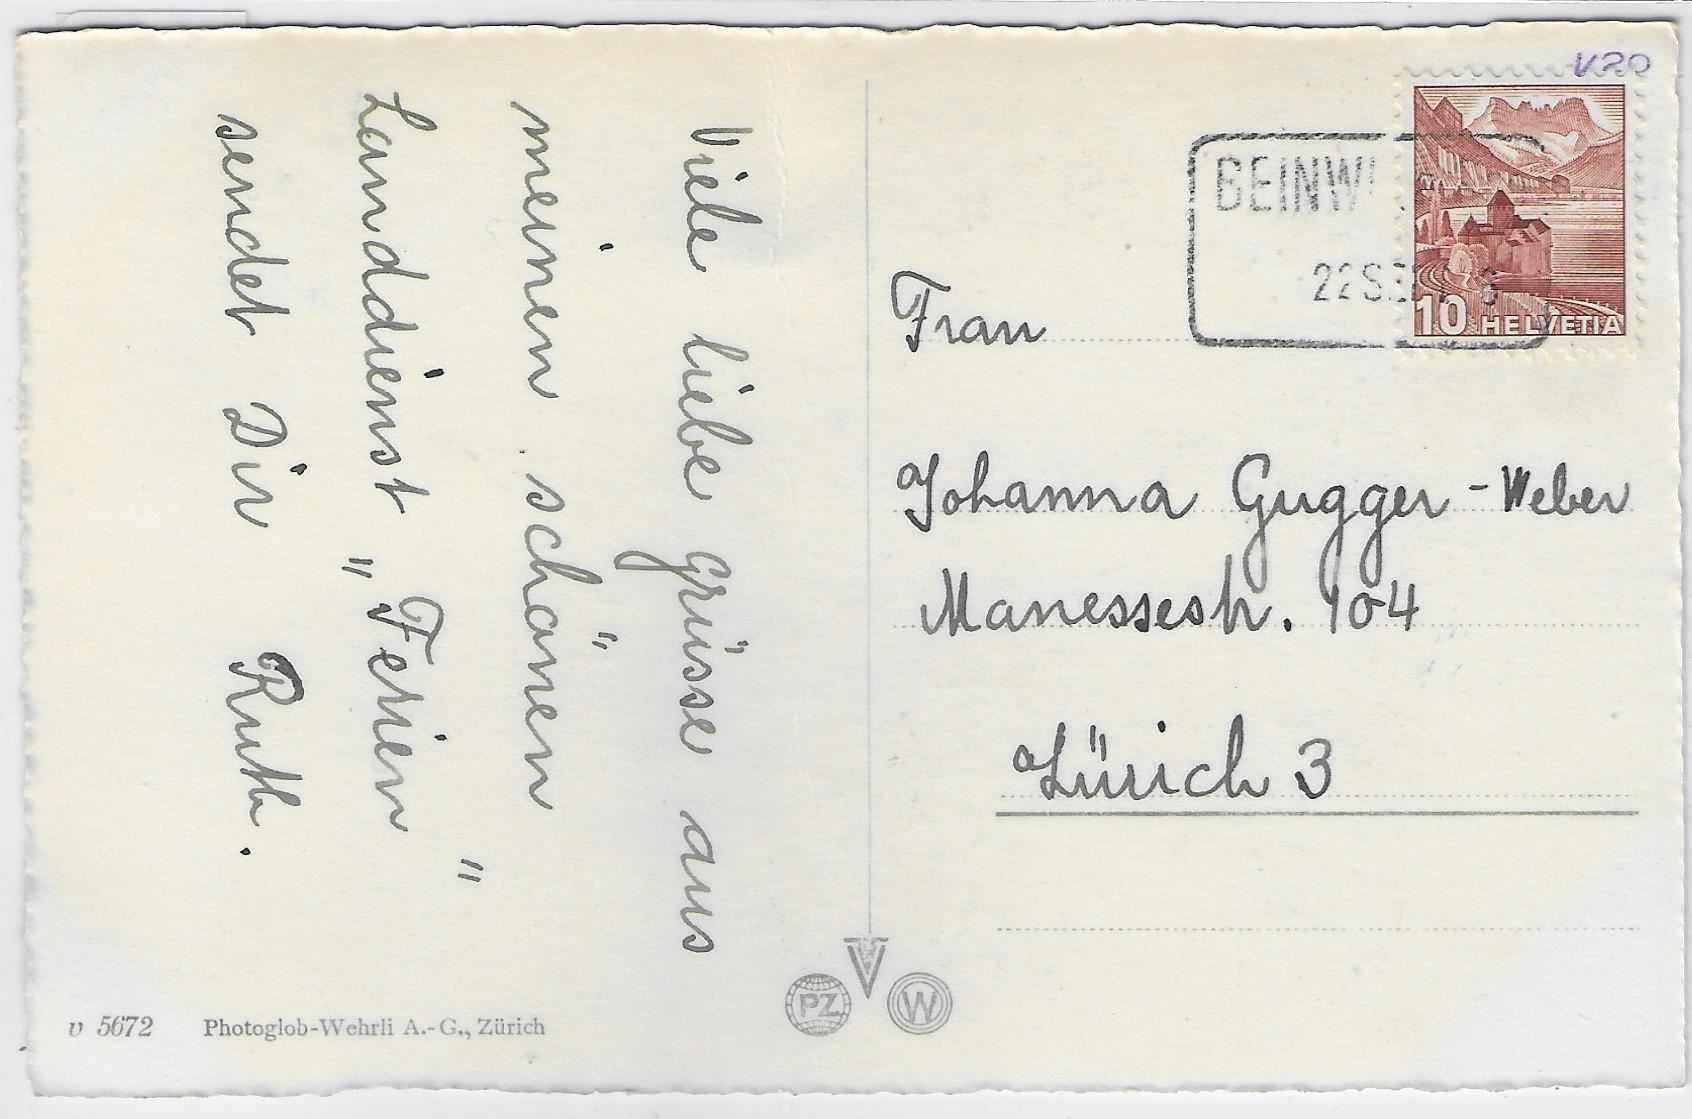 Viele liebe grüsse aus
meinen schönen
Landdienst „Ferien"
sendet Dir Ruth.
V20
BEINW
22 SE
10 HELVETIA
Frau
Johanna Gugger-Weber
Manessestr. 104
Zürich 3
PZ
W
v 5672 Photoglob-Wehrli A.-G., Zürich